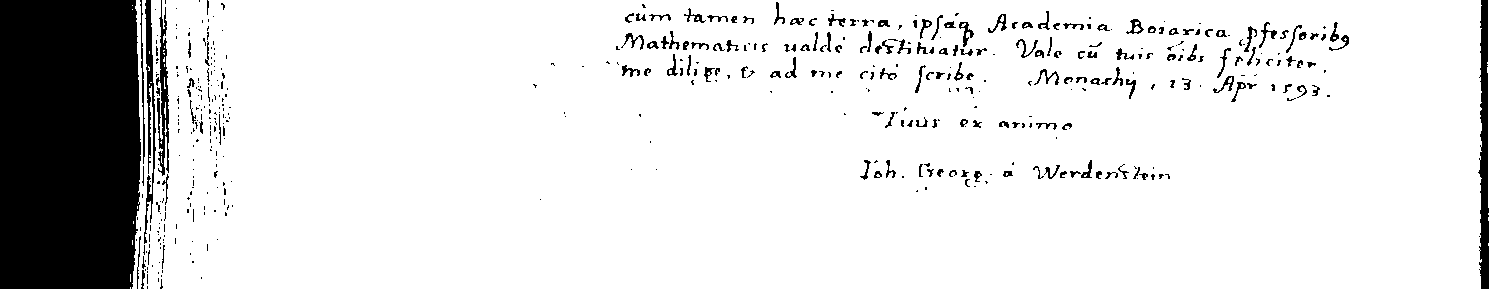 cùm tamen hæc terra, ipsáq́ʒ Academia Boiarica ꝓfessoribꝰ
Mathematicis valdè destituatur. Vale cū tuis oībs feliciter,
me dilige, & ad me citò scribe. Monachij, 13. Apr̄ 1593.
Tuus ex animo
Joh. Georg. à Werdenstein